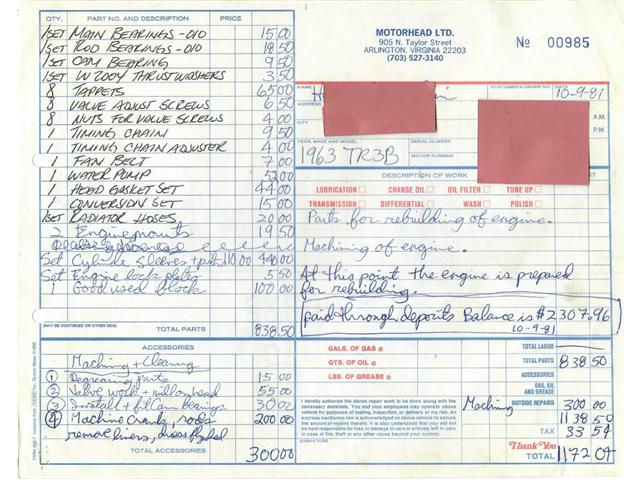 QTY. PART NO. AND DESCRIPTION PRICE
1 SET MAIN BEARINGS -010 15 00
1 SET ROD BEARINGS -010 18 50
1 SET CAM BEARING 9 50
1 SET W 200Y THRUSTWASHERS 3 50
8 TAPPETS 65 00
8 VALVE ADJUST SCREWS 6 50
8 NUTS FOR VALVE SCREWS 4 00
1 TIMING CHAIN 9 50
1 TIMING CHAIN ADJUSTER 4 00
1 FAN BELT 7 00
1 WATER PUMP 52 00
1 HEAD GASKET SET 44 00
1 CONVERSION SET 15 00
1 SET RADIATOR HOSES 20 00
2 Engine mounts 19 50
Set Cylinder Sleeves + pistons 440 00
Set Engine lock plates 5 50
1 Good used block 100 00
(MAY BE CONTINUED ON OTHER SIDE)
TOTAL PARTS 838.50
ACCESSORIES
Machining + Cleaning
① Degreasing parts 15 00
② Valve work + mill on head 55 00
③ Install + fit Cam bearings 30 00
④ Machine crank, rods 200 00
remove liners,
TOTAL ACCESSORIES 300 00
MOTORHEAD LTD.
905 N. Taylor Street
ARLINGTON, VIRGINIA 22203
(703) 527-3140
No 00985
NAME
CUSTOMER'S ORDER NO. DATE
10-9-81
ADDRESS
A.M.
CITY
P.M.
YEAR, MAKE AND MODEL SERIAL NUMBER
1963 TR3B MOTOR NUMBER
DESCRIPTION OF WORK
LUBRICATION CHANGE OIL OIL FILTER TUNE UP
TRANSMISSION DIFFERENTIAL WASH POLISH
Parts for rebuilding of engine.
Machining of engine.
At this point the engine is prepared
for rebuilding.
paid through deposits Balance is $2307.96
10-9-81
GALS. OF GAS @
QTS. OF OIL @
LBS. OF GREASE @
TOTAL LABOR
TOTAL PARTS 838 50
ACCESSORIES
GAS, OIL AND GREASE
Machining OUTSIDE REPAIRS 300 00
1138 50
TAX 33 54
Thank You
TOTAL 1172 04
I hereby authorize the above repair work to be done along with the
necessary materials. You and your employees may operate above
vehicle for purposes of testing, inspection, or delivery at my risk. An
express mechanics lien is acknowledged on above vehicle to secure
the amount of repairs thereto. It is also understood that you will not
be held responsible for loss or damage to cars or articles left in cars
in case of fire, theft or any other cause beyond your control.